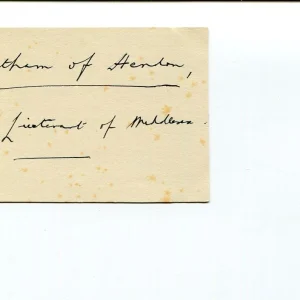 tham of Hendon,
Lieutenant of Middlesex.